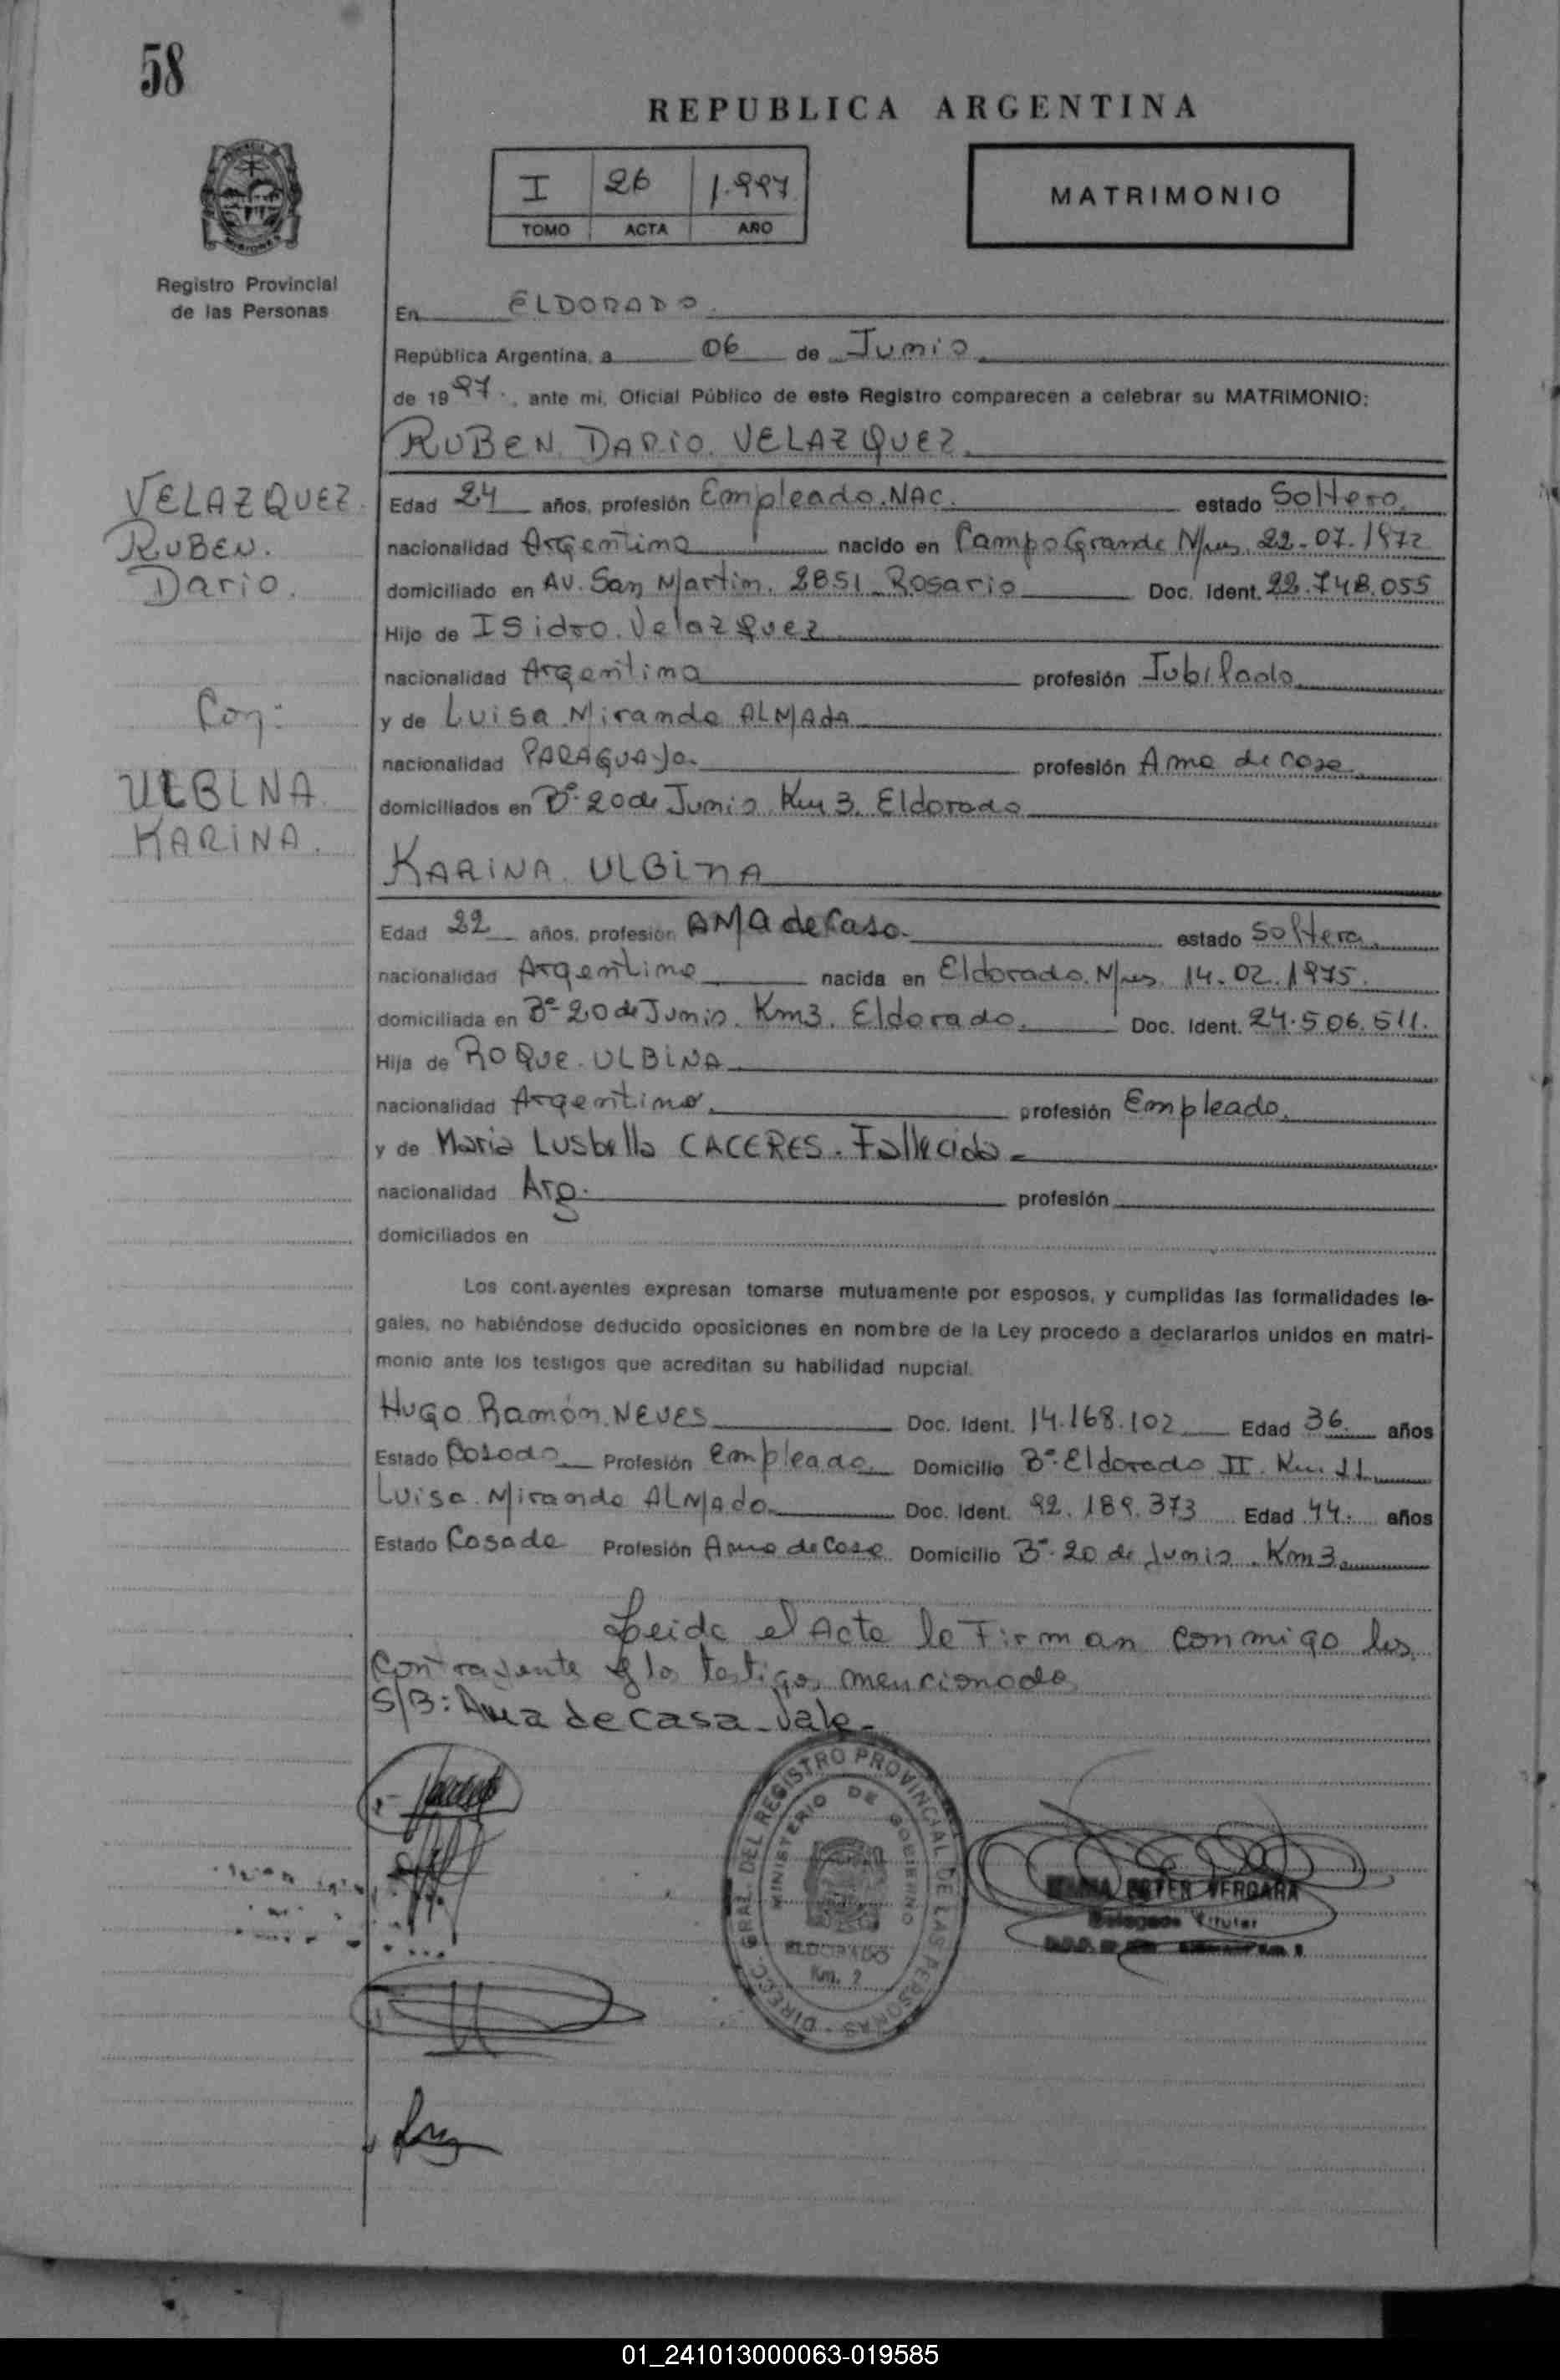 58
REPUBLICA ARGENTINA
I 26 1.997
TOMO ACTA AÑO
MATRIMONIO
Registro Provincial
de las Personas
En ELDORADO.
República Argentina, a 06 de Junio
de 1997., ante mi, Oficial Público de este Registro comparecen a celebrar su MATRIMONIO:
RUBEN DARIO VELAZQUEZ
VELAZQUEZ
RUBEN.
Dario.
Con:
ULBINA
KARINA.
Edad 24 años, profesión Empleado.NAC. estado Soltero.
nacionalidad Argentina nacido en Campo Grande Mnes. 22-07-1972
domiciliado en AV. San Martin. 2851 Rosario Doc. Ident. 22.748.055
Hijo de ISidro Velazquez
nacionalidad Argentina profesión Jubilado
y de Luisa Miranda ALMAda
nacionalidad PARAGUAya. profesión Ama de casa
domiciliados en Bº 20 de Junio Km 3. Eldorado
KARINA ULBINA
Edad 22 años, profesión AMA de Casa. estado Soltera
nacionalidad Argentina nacida en Eldorado. Mnes 14.02.1975.
domiciliada en Bº 20 de Junio. Km3. Eldorado. Doc. Ident. 24.506.511.
Hija de ROQUE ULBINA
nacionalidad Argentino. profesión Empleado.
y de Maria Lusbella CACERES. Fallecida
nacionalidad Arg. profesión
domiciliados en
Los cont.ayentes expresan tomarse mutuamente por esposos, y cumplidas las formalidades le-
gales, no habiéndose deducido oposiciones en nombre de la Ley procedo a declararlos unidos en matri-
monio ante los testigos que acreditan su habilidad nupcial.
HUGO Ramón NEVES Doc. Ident. 14.168.102 Edad 36. años
Estado Casado Profesión empleado Domicilio Bº Eldorado II. Km. 11
Luisa Miranda ALMAda Doc. Ident. 92.189.373 Edad 44. años
Estado Casada Profesión Ama de Casa Domicilio Bº 20 de Junio. Km3.
Leida el Acta la Firman conmigo los
Contrayente y los testigos mencionado
S/B: Ama de casa Vale.-
DIRECC. GRAL. DEL REGISTRO PROVINCIAL DE LAS PERSONAS
MINISTERIO DE GOBIERNO
ELDORADO
Km. 2
ESTER VERGARA
Delegada Titular
01_241013000063-019585